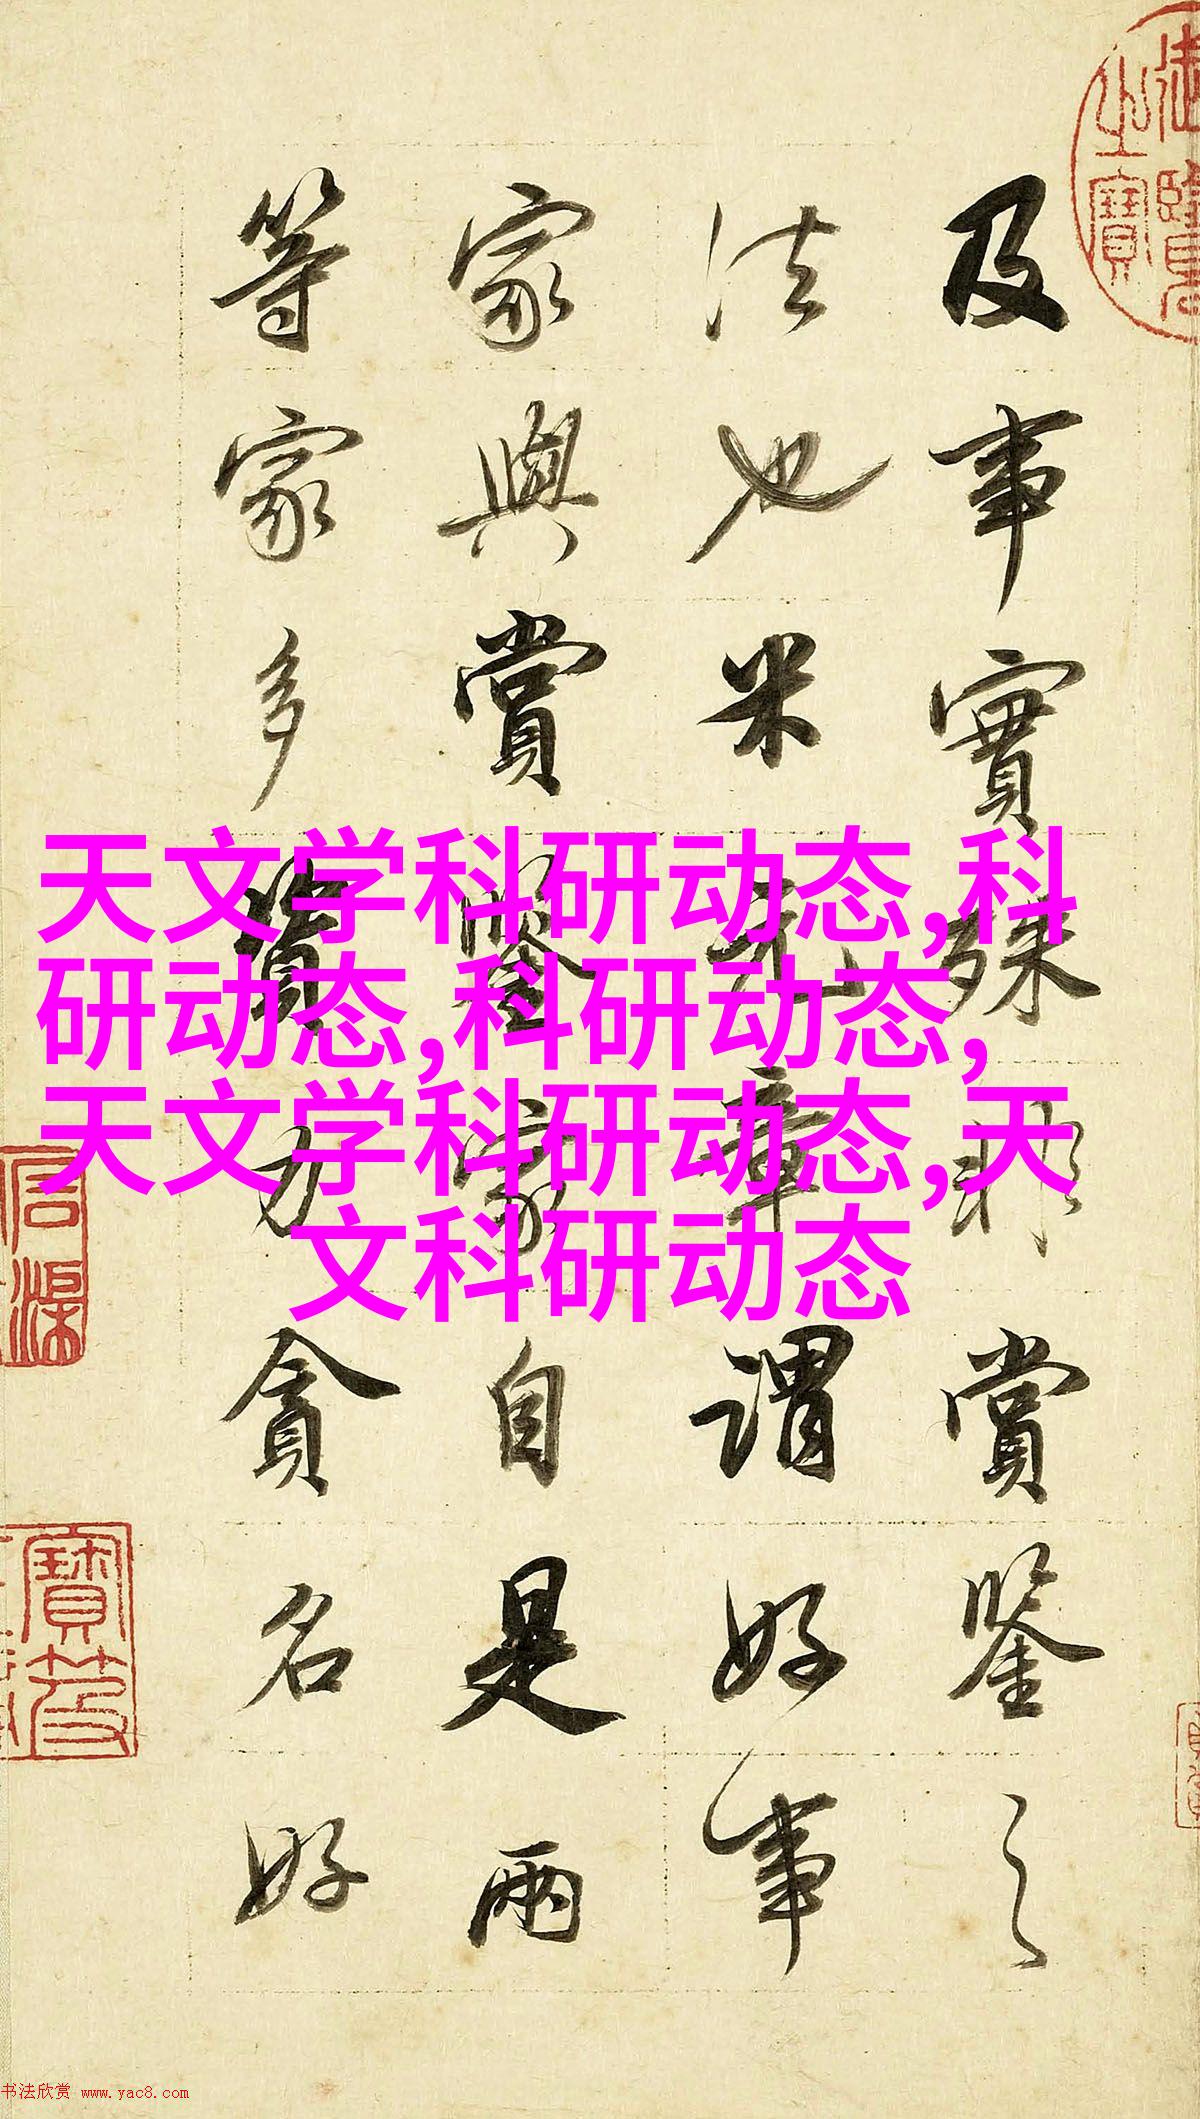 及事實殊非賞鑒之
法也米元章謂好事
家與賞鑒家自是兩
等家多資力貪名好
天文学科研动态,科
研动态,科研动态,
天文学科研动态,天
文科研动态
御覽
之寶
寶笈
书法欣赏 www.yac8.com